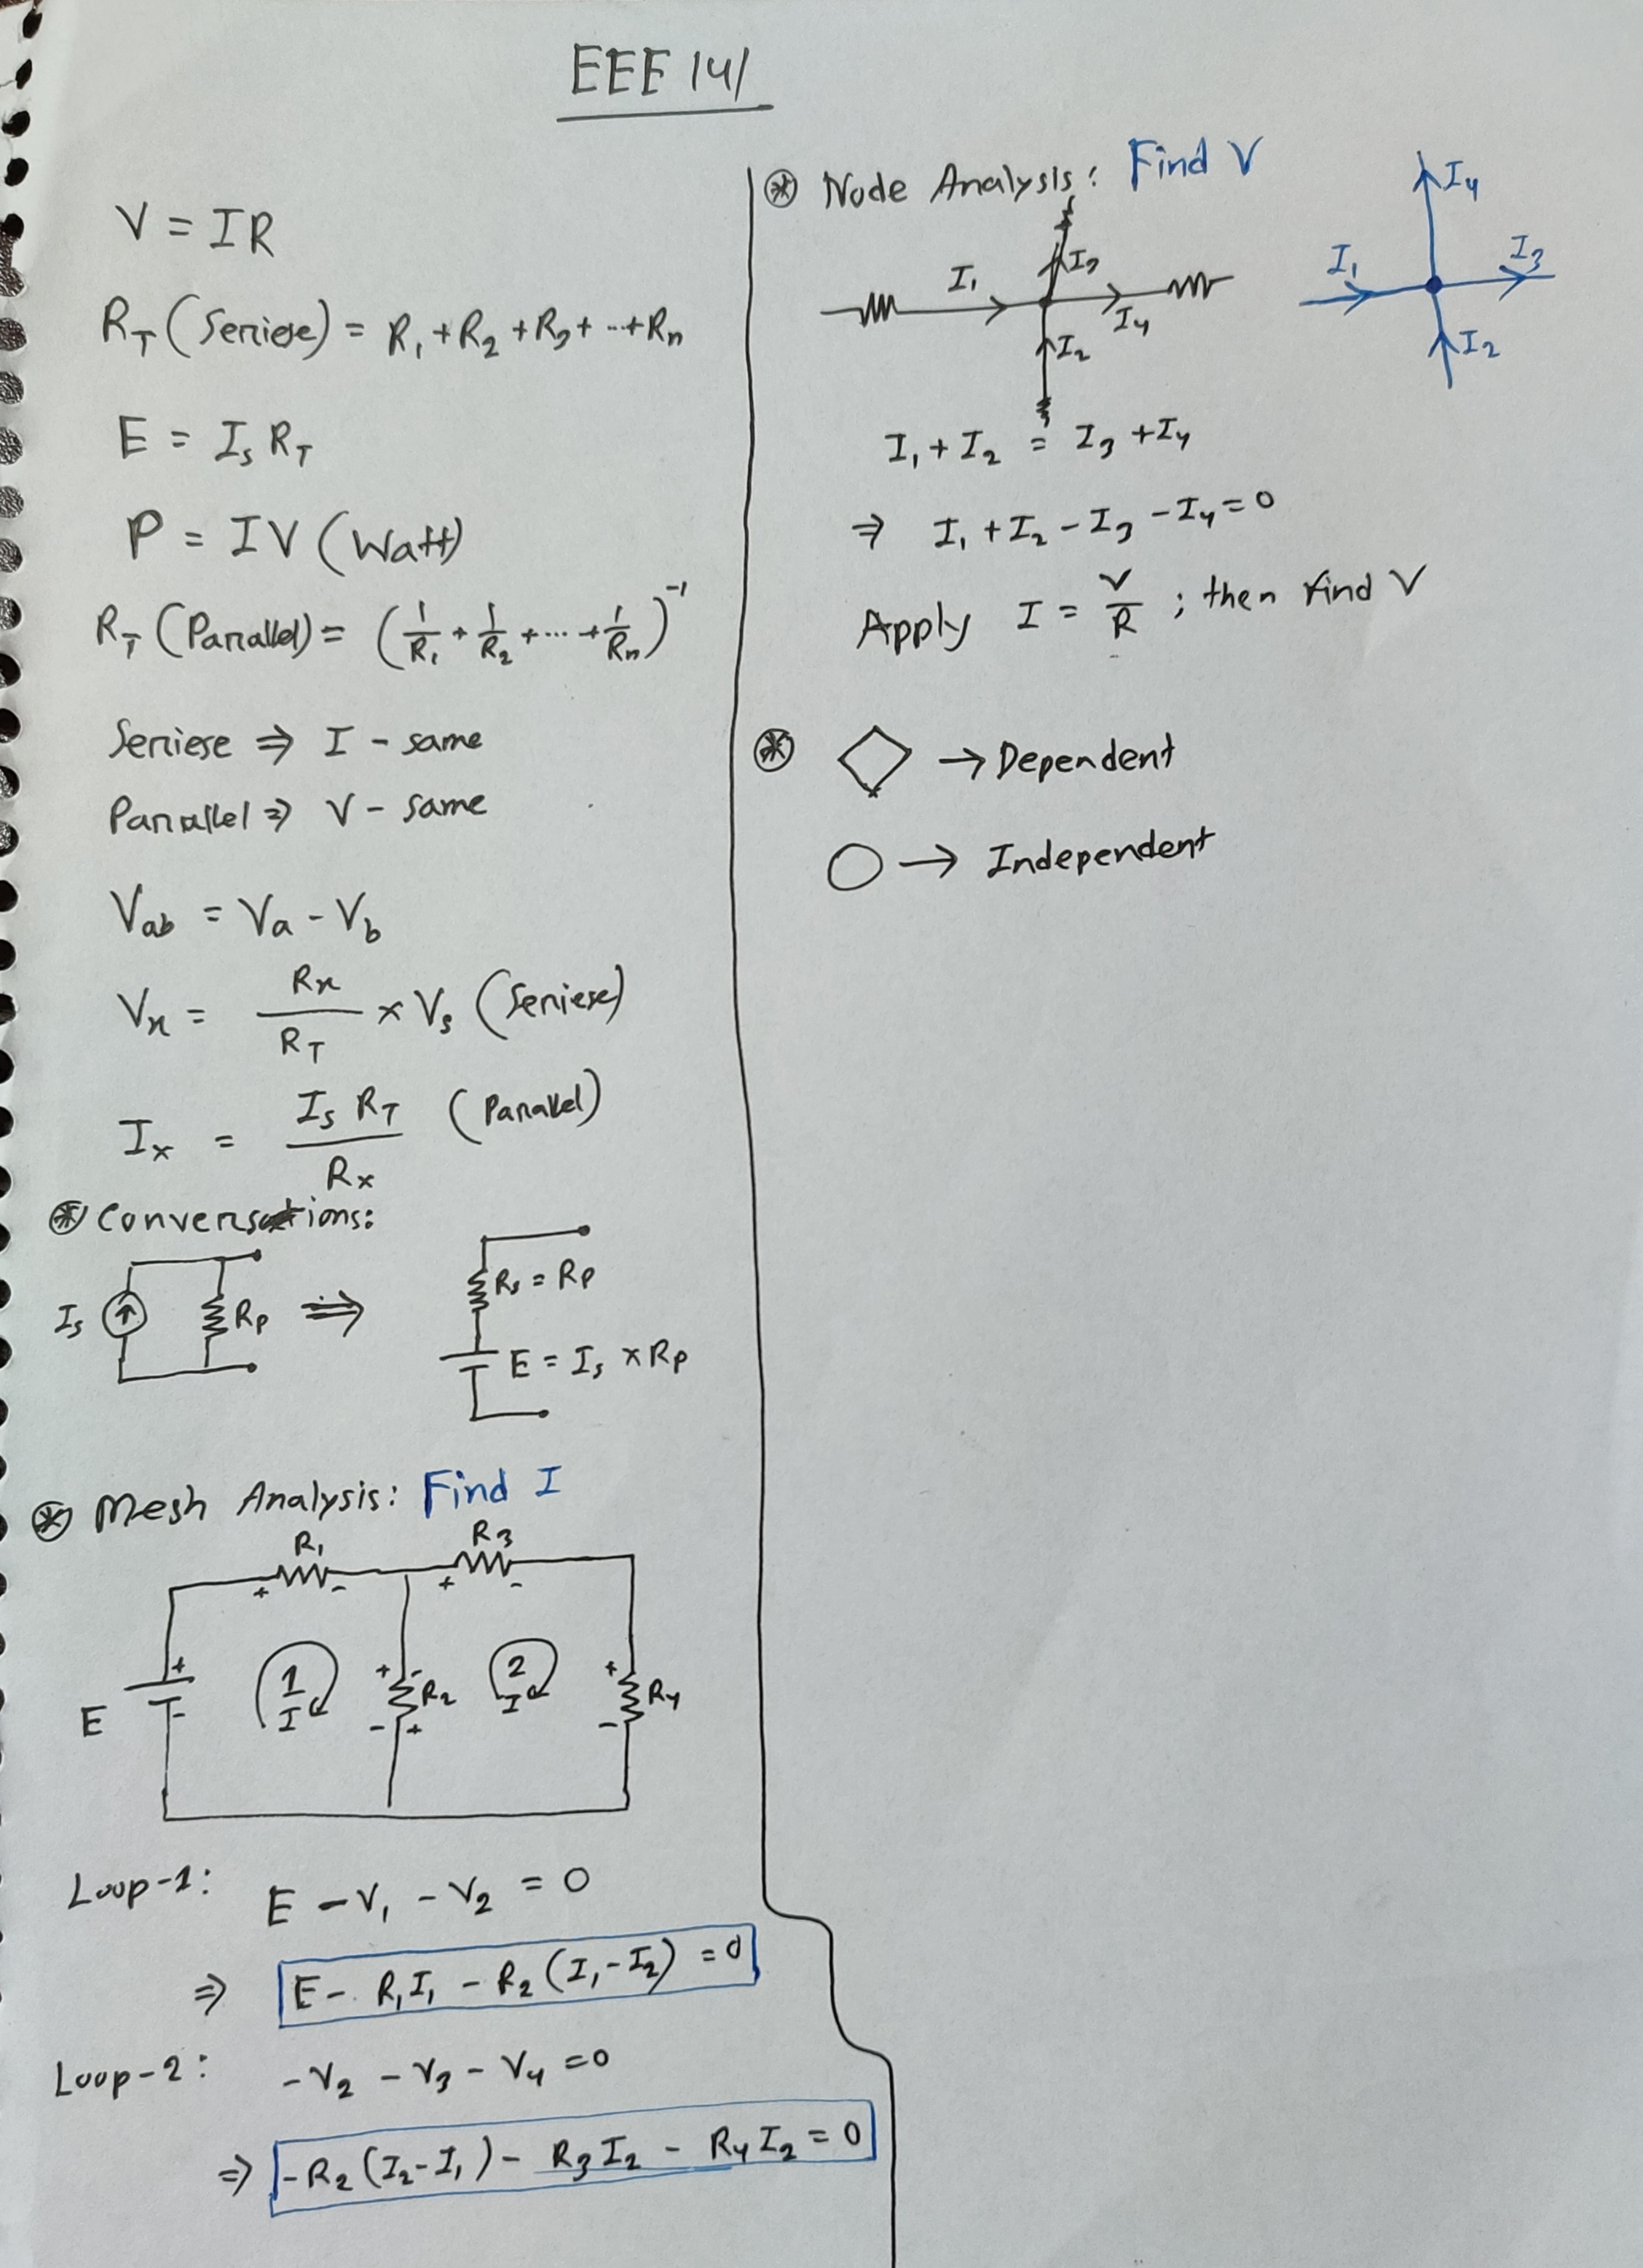 EEE 141
V = IR
R_T (Seriese) = R₁ + R₂ + R₃ + ... + Rₙ
E = I_s R_T
P = IV (Watt)
R_T (Parallel) = (1/R₁ + 1/R₂ + ... + 1/Rₙ)⁻¹
Seriese ⇒ I - same
Parallel ⇒ V - same
V_ab = V_a - V_b
V_x = R_x/R_T × V_s (Seriese)
I_x = I_s R_T / R_x (Parallel)
⊛ Conversations:
I_s R_P ⇒ R_s = R_P
E = I_s × R_P
⊛ Mesh Analysis: Find I
R₁ R₃
+ - + -
E + - 1 I + - R₂ - + 2 I + - R₄
Loop-1: E - V₁ - V₂ = 0
⇒ E - R₁I₁ - R₂(I₁-I₂) = 0
Loop-2: -V₂ - V₃ - V₄ = 0
⇒ -R₂(I₂-I₁) - R₃I₂ - R₄I₂ = 0
⊛ Node Analysis: Find V
I₁ I₃ I₄ I₂
I₄ I₁ I₃ I₂
I₁ + I₂ = I₃ + I₄
⇒ I₁ + I₂ - I₃ - I₄ = 0
Apply I = V/R ; then find V
⊛ ◇ → Dependent
○ → Independent